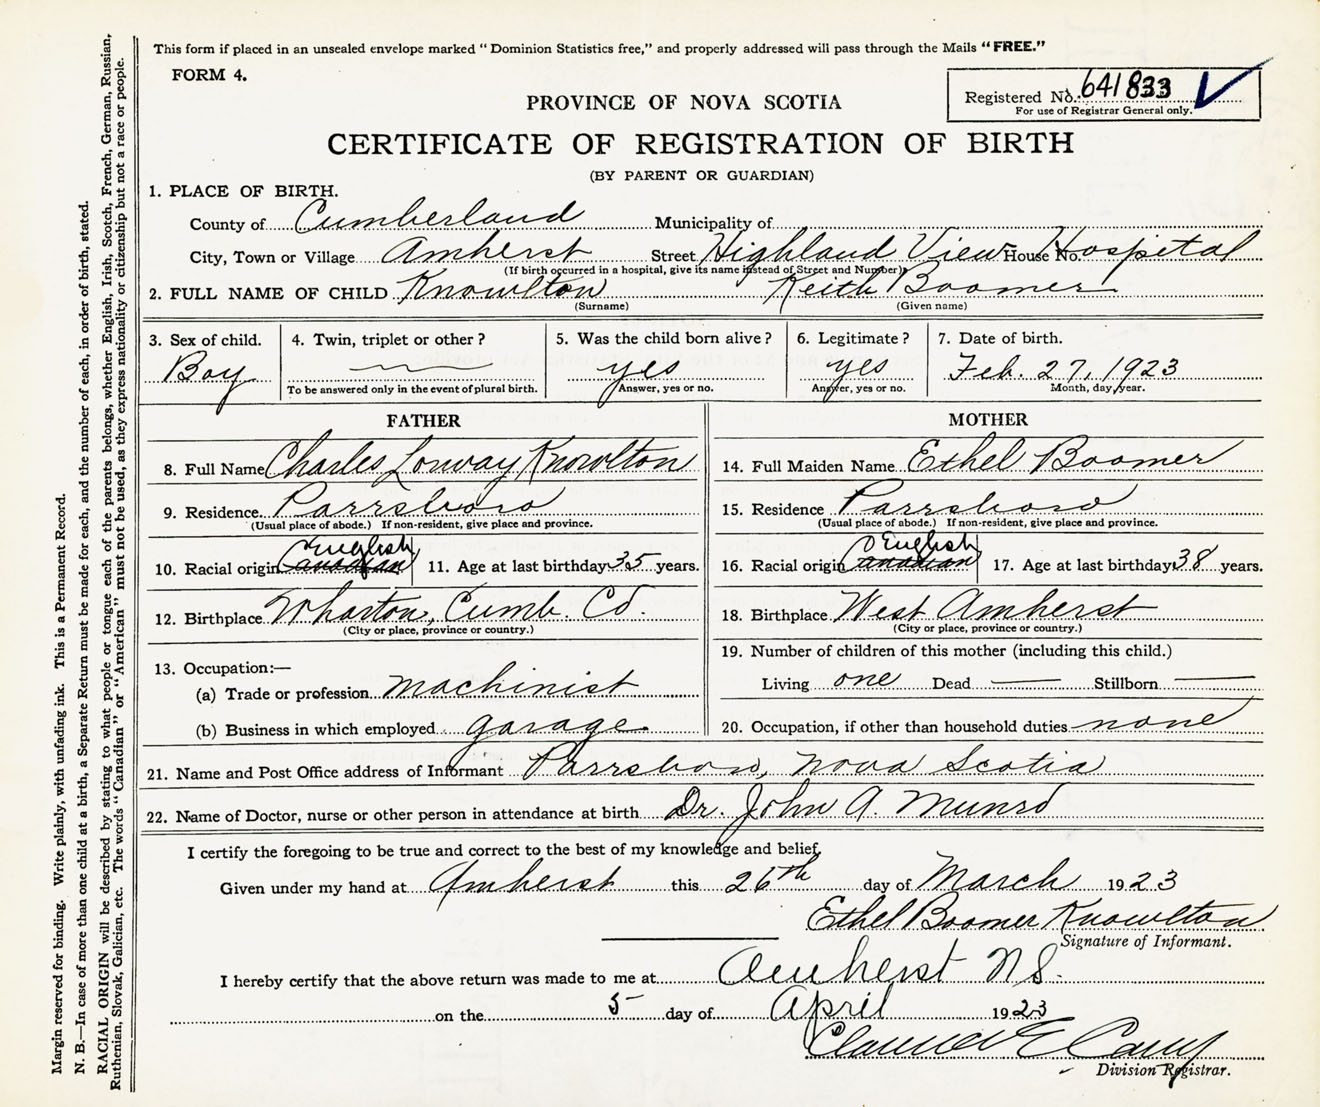 This form if placed in an unsealed envelope marked "Dominion Statistics free," and properly addressed will pass through the Mails "FREE."
FORM 4.
Registered No. 641833
For use of Registrar General only.
PROVINCE OF NOVA SCOTIA
CERTIFICATE OF REGISTRATION OF BIRTH
(BY PARENT OR GUARDIAN)
1. PLACE OF BIRTH.
County of Cumberland Municipality of
City, Town or Village Amherst Street Highland View House No. Hospital
(If birth occurred in a hospital, give its name instead of Street and Number)
2. FULL NAME OF CHILD Knowlton Keith Boomer
(Surname) (Given name)
3. Sex of child. 4. Twin, triplet or other? 5. Was the child born alive? 6. Legitimate? 7. Date of birth.
Boy yes yes Feb. 27, 1923
To be answered only in the event of plural birth. Answer, yes or no. Answer, yes or no. Month, day, year.
FATHER
8. Full Name Charles Knowlton
9. Residence Parrsboro
(Usual place of abode.) If non-resident, give place and province.
English
10. Racial origin Canadian 11. Age at last birthday 35 years.
12. Birthplace Wharton, Cumb. Co.
(City or place, province or country.)
13. Occupation:—
(a) Trade or profession machinist
(b) Business in which employed garage
MOTHER
14. Full Maiden Name Ethel Boomer
15. Residence Parrsboro
(Usual place of abode.) If non-resident, give place and province.
English
16. Racial origin Canadian 17. Age at last birthday 38 years.
18. Birthplace West Amherst
(City or place, province or country.)
19. Number of children of this mother (including this child.)
Living one Dead — Stillborn —
20. Occupation, if other than household duties none
21. Name and Post Office address of Informant Parrsboro, Nova Scotia
22. Name of Doctor, nurse or other person in attendance at birth Dr. John A. Munro
I certify the foregoing to be true and correct to the best of my knowledge and belief.
Given under my hand at Amherst this 26th day of March 1923
Ethel Boomer Knowlton
Signature of Informant.
I hereby certify that the above return was made to me at Amherst NS.
on the 5 day of April 1923
Division Registrar.
Margin reserved for binding. Write plainly, with unfading ink. This is a Permanent Record.
N. B.—In case of more than one child at a birth, a Separate Return must be made for each, and the number of each, in order of birth, stated.
RACIAL ORIGIN will be described by stating to what people or tongue each of the parents belongs, whether English, Irish, Scotch, French, German, Russian,
Ruthenian, Slovak, Galician, etc. The words "Canadian" or "American" must not be used, as they express nationality or citizenship but not a race or people.